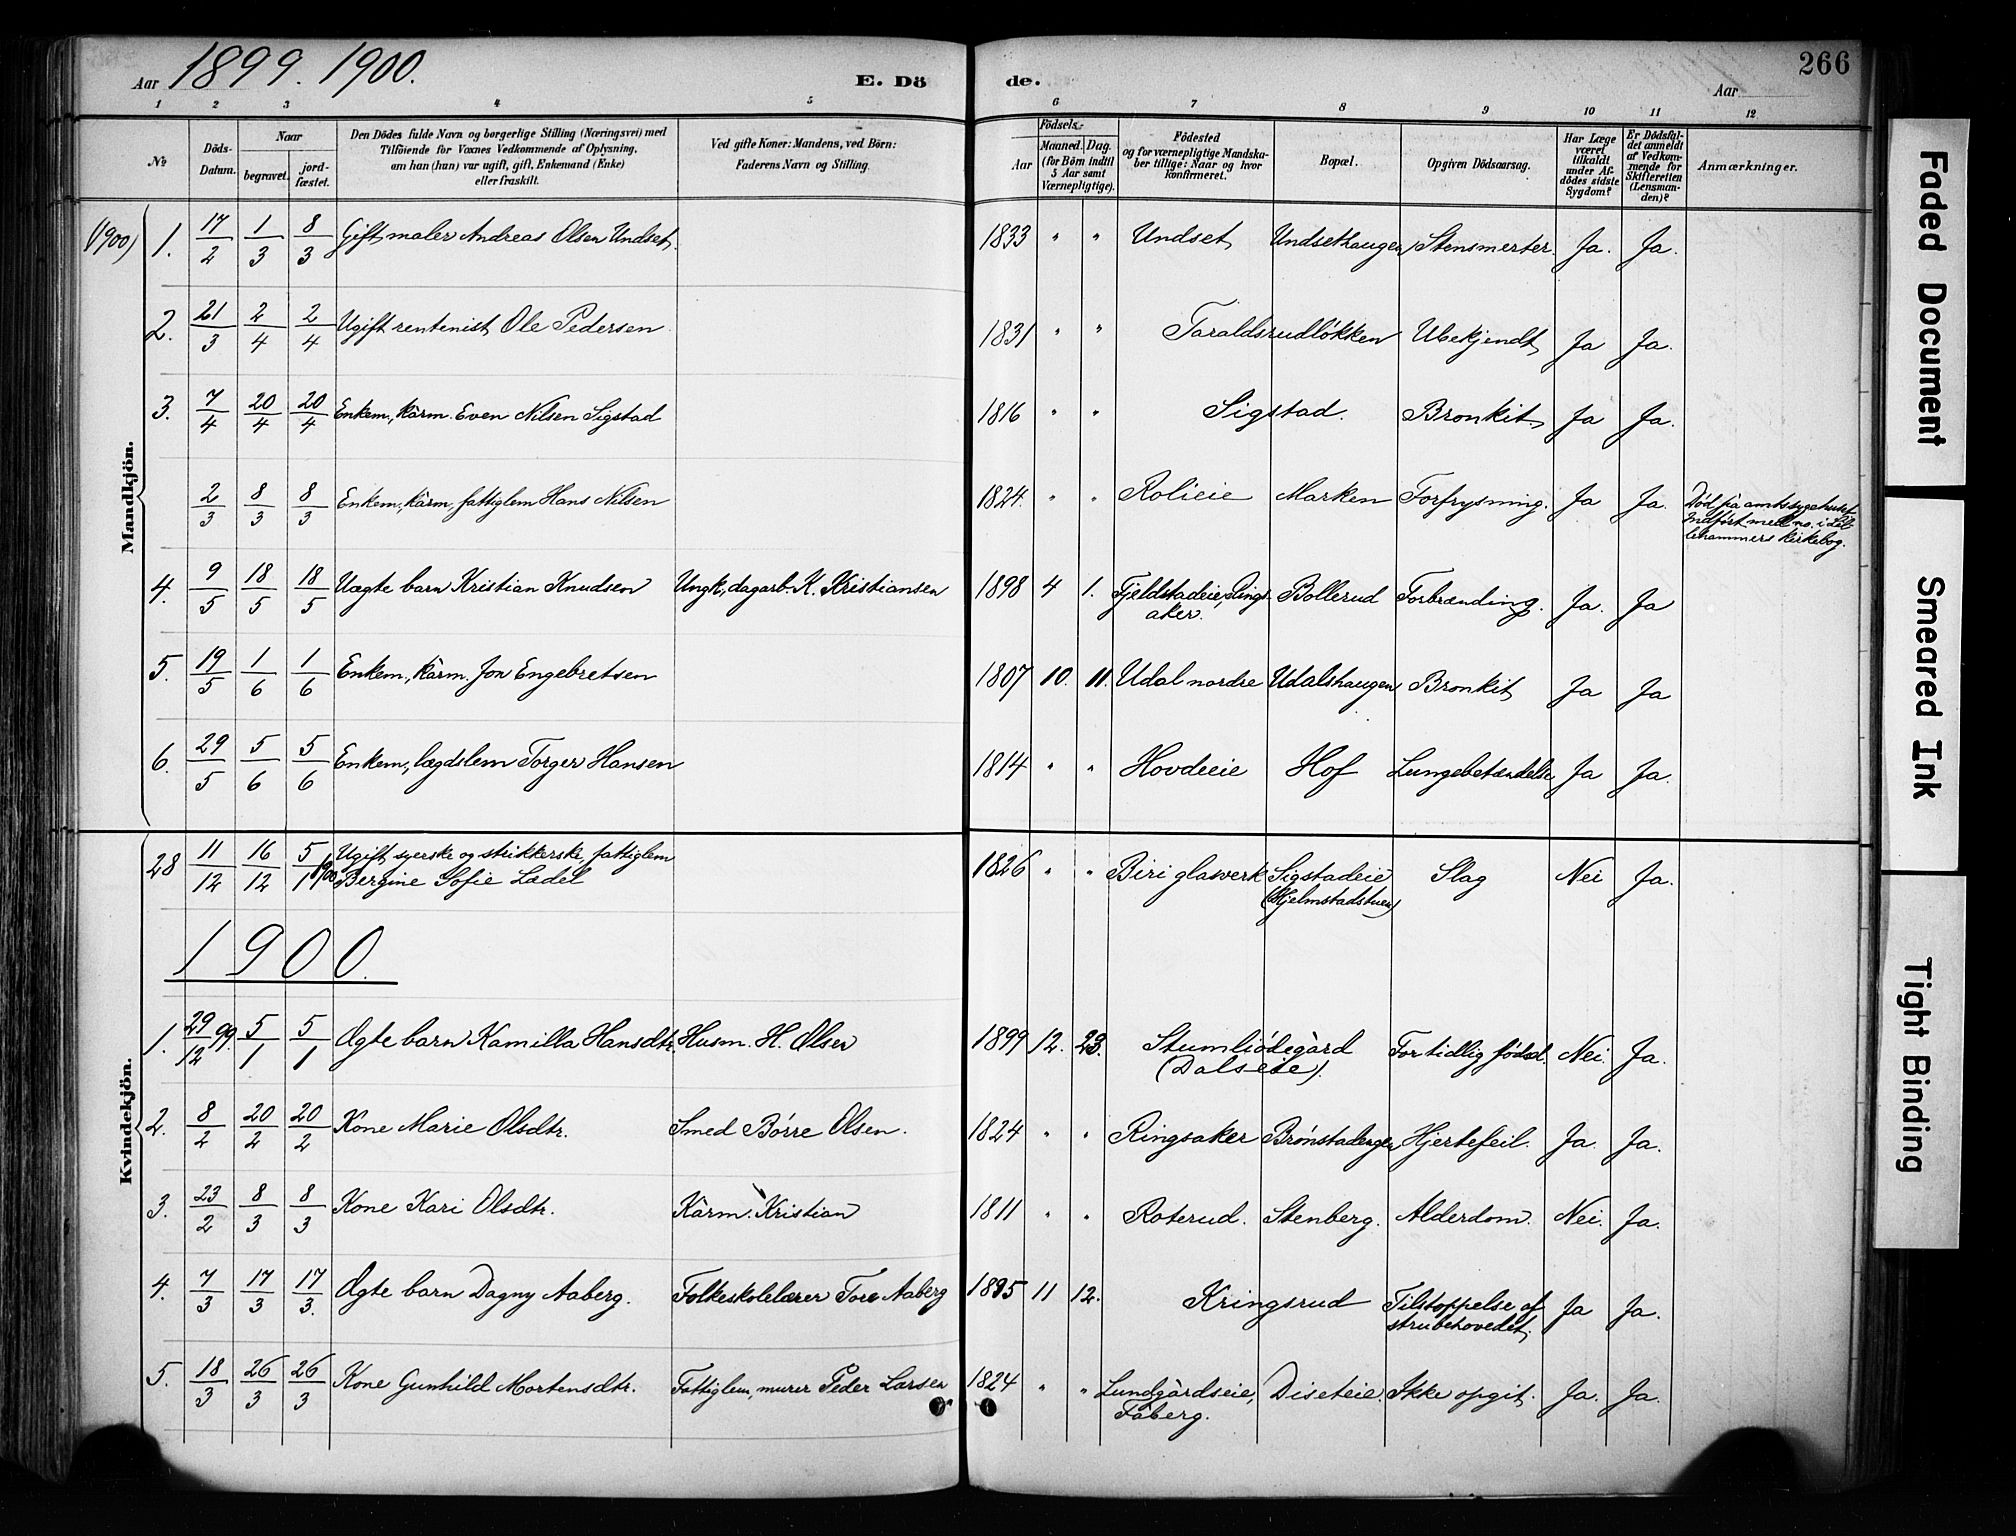 Aar 1899. 1900. E. Dö
de. Aar 266
1 2 3 4 5 6 7 8 9 10 11 12
№ Döds-Datum. Naar begravet. jord-fæstet. Den Dödes fulde Navn og borgerlige Stilling (Næringsvei) med Tilföiende for Voxnes Vedkommende af Oplysning, om han (hun) var ugift, gift, Enkemand (Enke) eller fraskilt. Ved gifte Koner: Mandens, ved Börn: Faderens Navn og Stilling. Födsels- Aar Maaned. Dag. (for Börn indtil 5 Aar samt Værnepligtige). Födested og for værnepligtige Mandskaber tillige: Naar og hvor konfirmeret. Bopæl. Opgiven Dödsaarsag. Har Læge været tilkaldt under Afdödes sidste Sygdom? Er Dödsfaldet anmeldt af Vedkommende for Skifteretten (Lensmanden)? Anmærkninger.
Mandkjön.
(1900) 1. 17/2 1/3 8/3 Gift maler Andreas Olsen Undset. 1833 " " Undset Undsethaugen Stensmerter. Ja. Ja.
2. 21/3 2/4 2/4 Ugift rentenist Ole Pedersen 1831 " " Taraldsrudløkken Ubekjendt Ja Ja.
3. 7/4 20/4 20/4 Enkem., kårm. Even Nilsen Sigstad 1816 " " Sigstad. Bronkit. Ja Ja.
2/3 8/3 8/3 Enkem., kårm, fattiglem Hans Nilsen 1824. " " Rolieie Marken Forfrysning. Ja Ja. Död på amtssygehuset
Indført med no. i Lil-
lehammers kirkebog.
4. 9/5 18/5 18/5 Uægte barn Kristian Knudsen Ungk., dagarb. K. Kristiansen 1898 4 1. Fjeldstadeie, Rings-
aker. Bollerud Forbrænding. Ja. Ja
5. 19/5 1/6 1/6 Enkem., kårm. Jon Engebretsen 1807 10. 11. Udal nordre Udalshaugen Bronkit Ja Ja
6. 29/5 5/6 5/6 Enkem., lægdslem Torger Hansen 1814 " " Hovdeeie Hof Lungebetændelse Ja Ja.
Kvindekjön.
28 11/12 16/12 5/1 1900 Ugift syerske og strikkerske, fattiglem
Bergine Sofie Ladel 1826 " " Biri glasverk Sigstadeie
(Hjelmstadstuen) Slag Nei Ja.
1900.
1. 29/12 99. 5/1 5/1 Ægte barn Kamilla Hansdtr. Husm. H. Olsen 1899 12. 23. Stumliødegård
(Dalseie). For tidlig födsel. Nei. Ja.
2. 8/2 20/2 20/2 Kone Marie Olsdtr. Smed Börre Olsen. 1824 " " Ringsaker Brønstadengen Hjertefeil. Ja. Ja.
3. 23/2 8/3 8/3 Kone Kari Olsdtr. Kårm. Kristian 1811 " " Roterud. Stenberg. Alderdom. Nei. Ja.
4. 7/3 17/3 17/3. Ægte barn Dagny Aaberg. Folkeskolelærer Tore Aaberg 1895 11 12. Kringsrud Tilstoppelse af
strubehovedet. Ja Ja.
5. 18/3 26/3 26/3 Kone Gunhild Mortensdtr. Fattiglem, murer Peder Larsen 1824 " " Lundgårdseie,
Fåberg. Diseteie. Ikke opgit. Ja. Ja.
Faded Document
Smeared Ink
Tight Binding